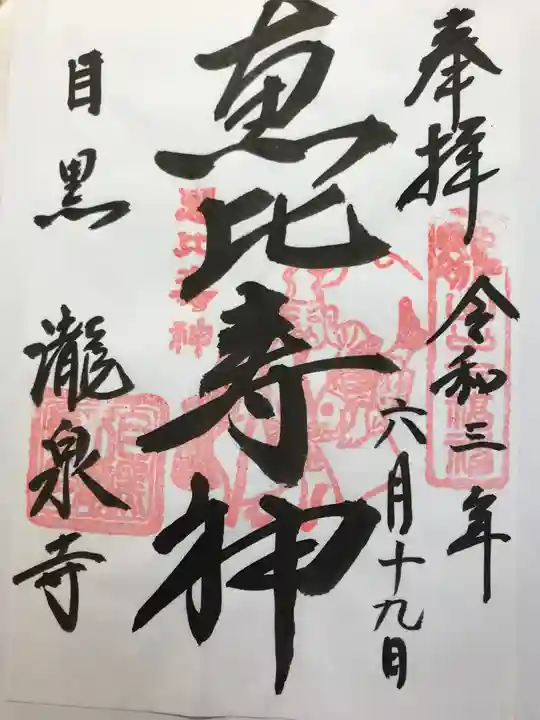 奉拝
令和三年
六月十九日
恵比寿神
恵比寿神
目黒
瀧泉寺